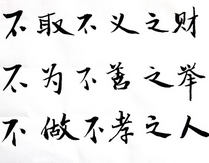 不取不义之财
不为不善之举
不做不孝之人